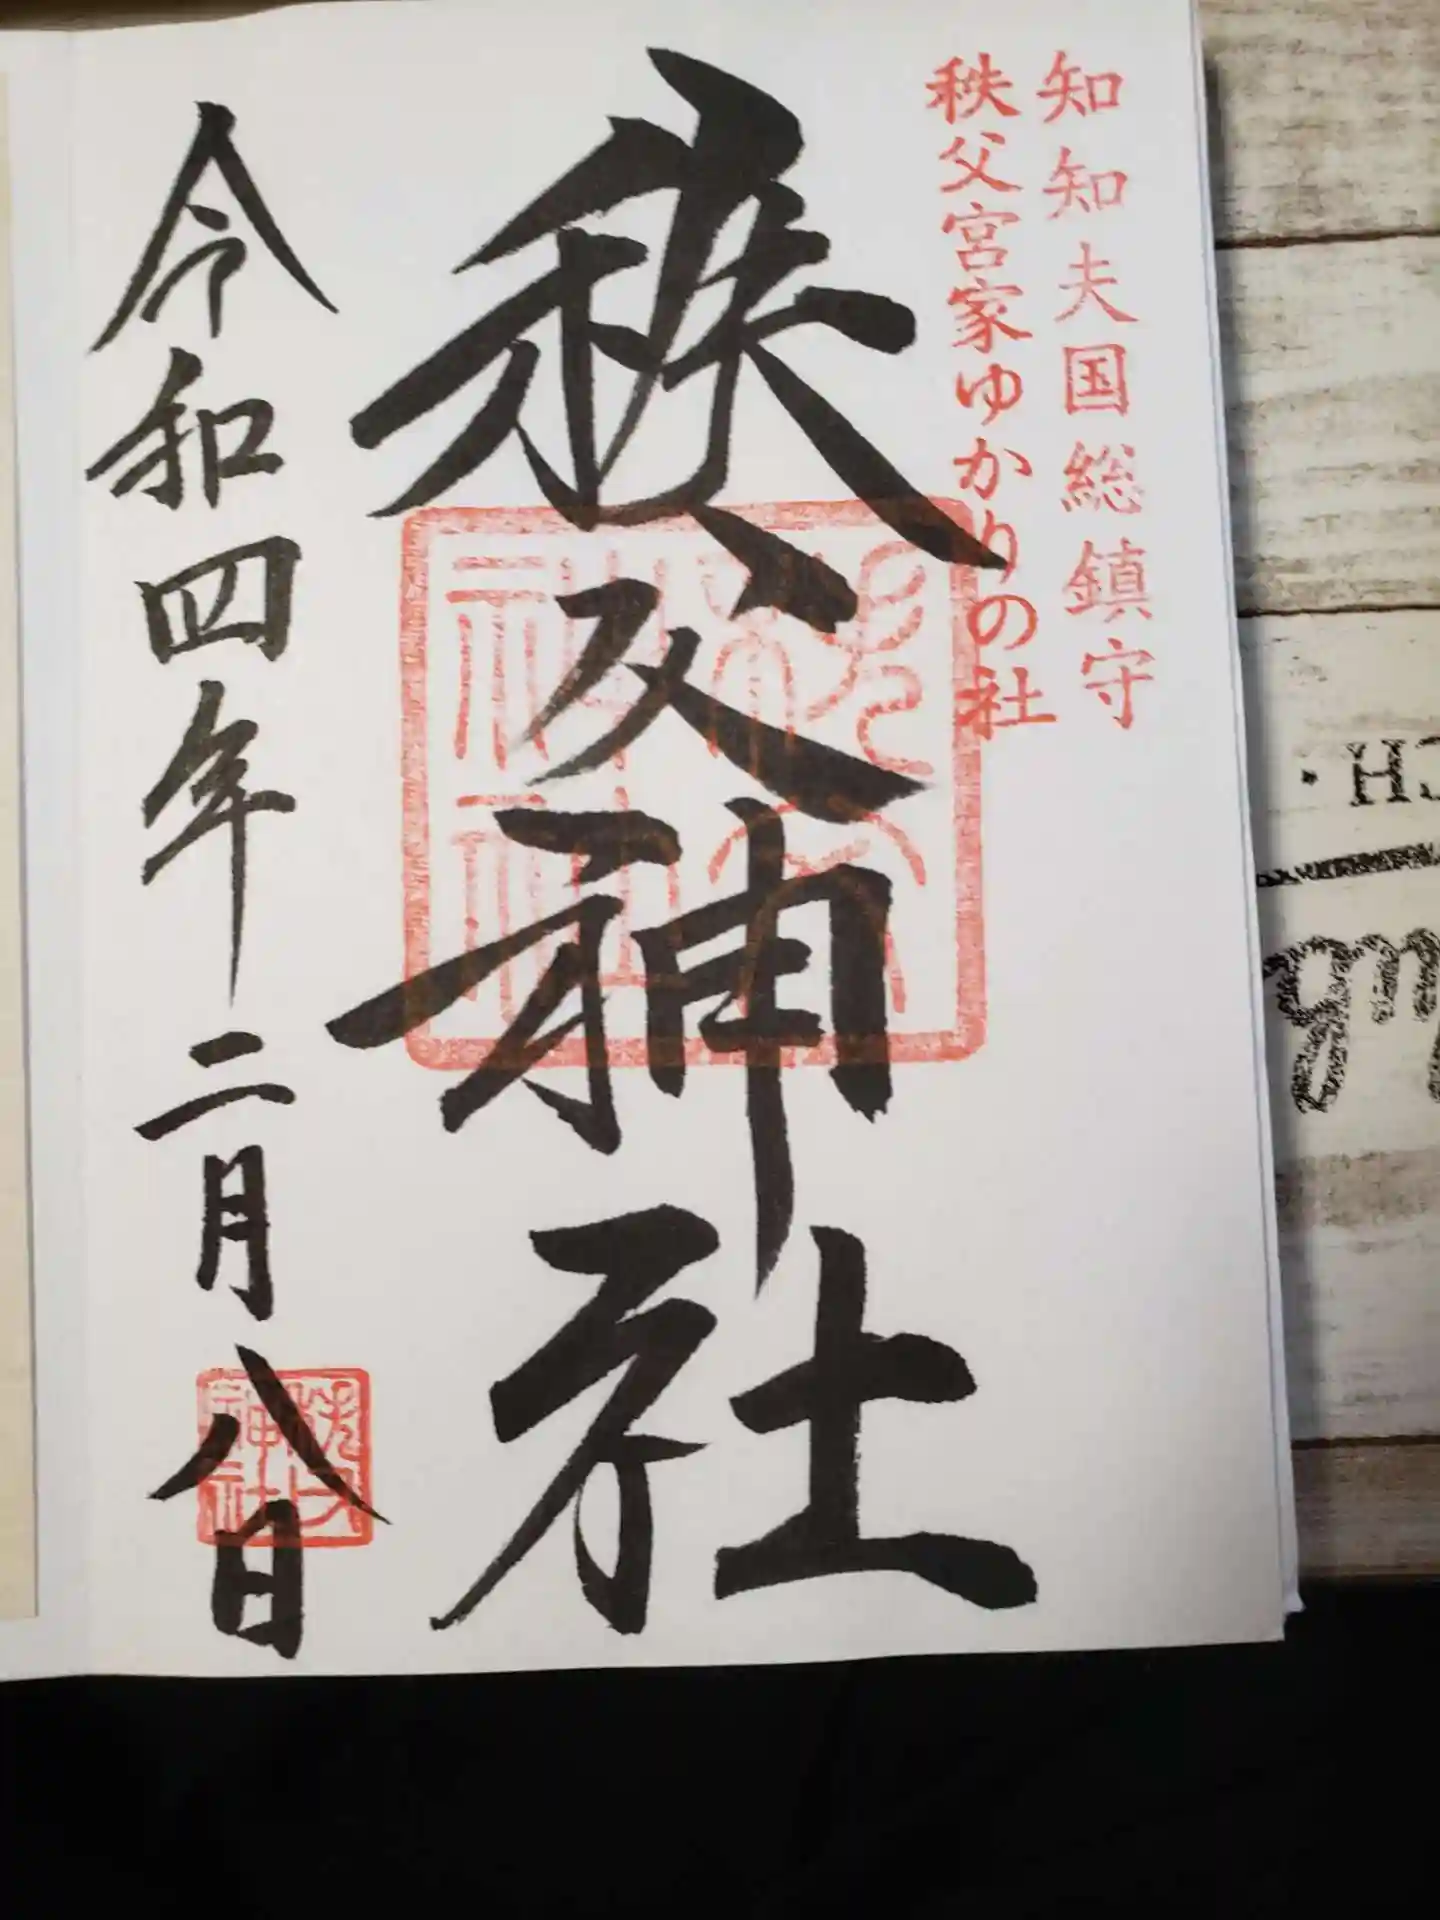 知知夫国総鎮守
秩父宮家ゆかりの社
秩父神社
秩父神社
令和四年二月八日
秩父神社